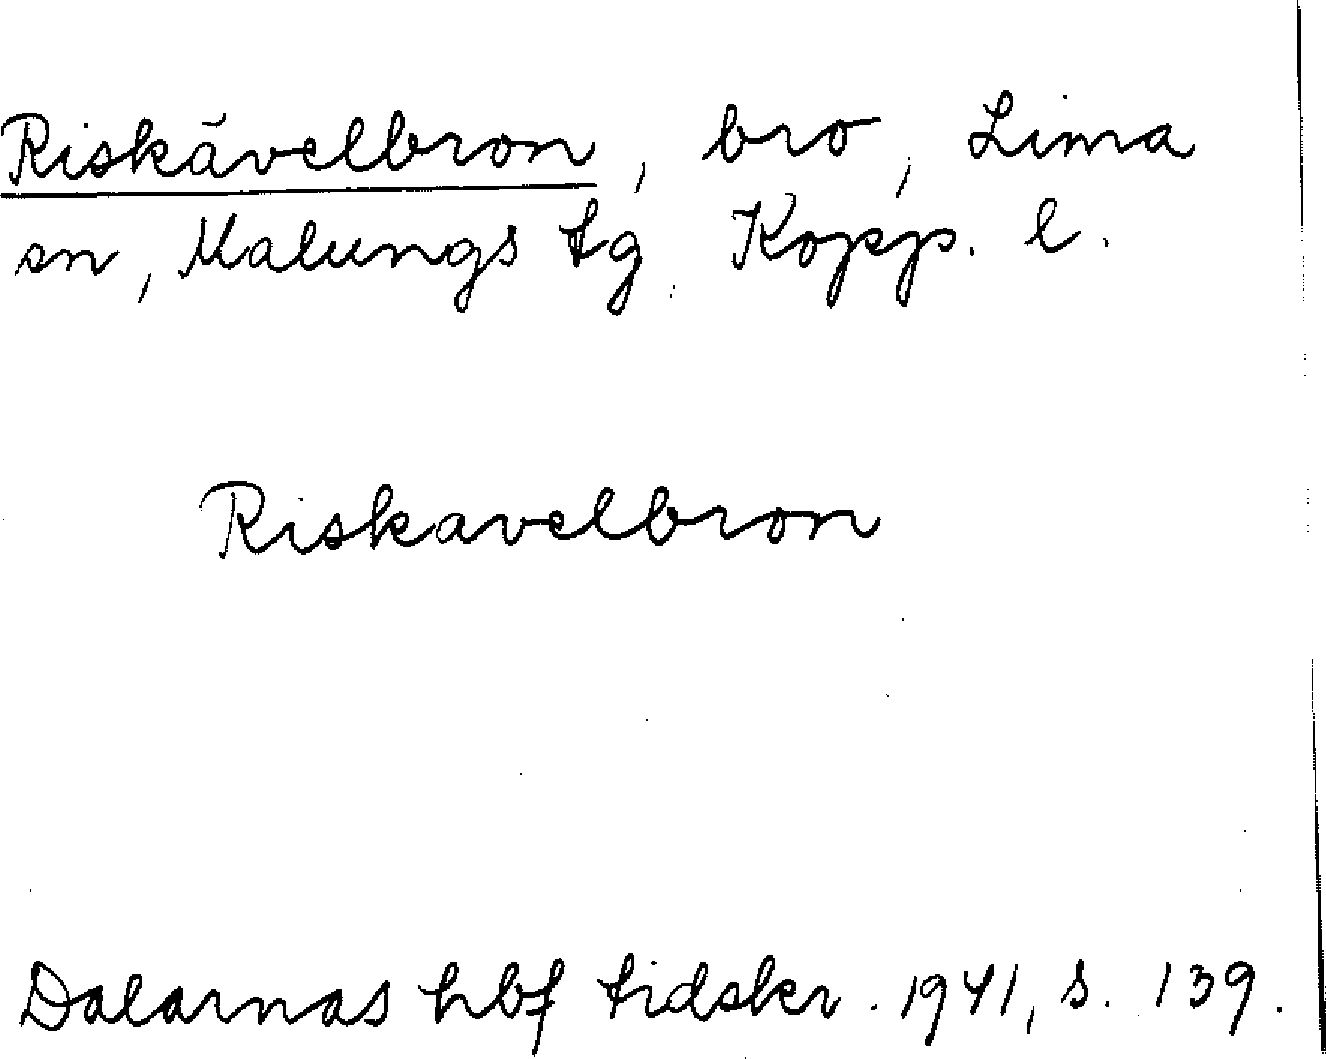 Riskåvelbron, bro, Lima
sn, Malungs tg Kopp. l.
Riskavelbron
Dalarnas hbf tidskr. 1941, s. 139.